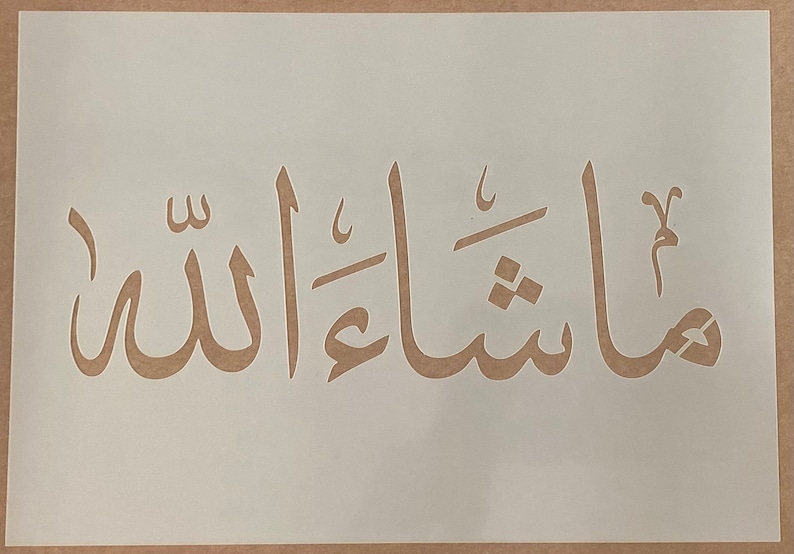 ما شَاءَ اللّه